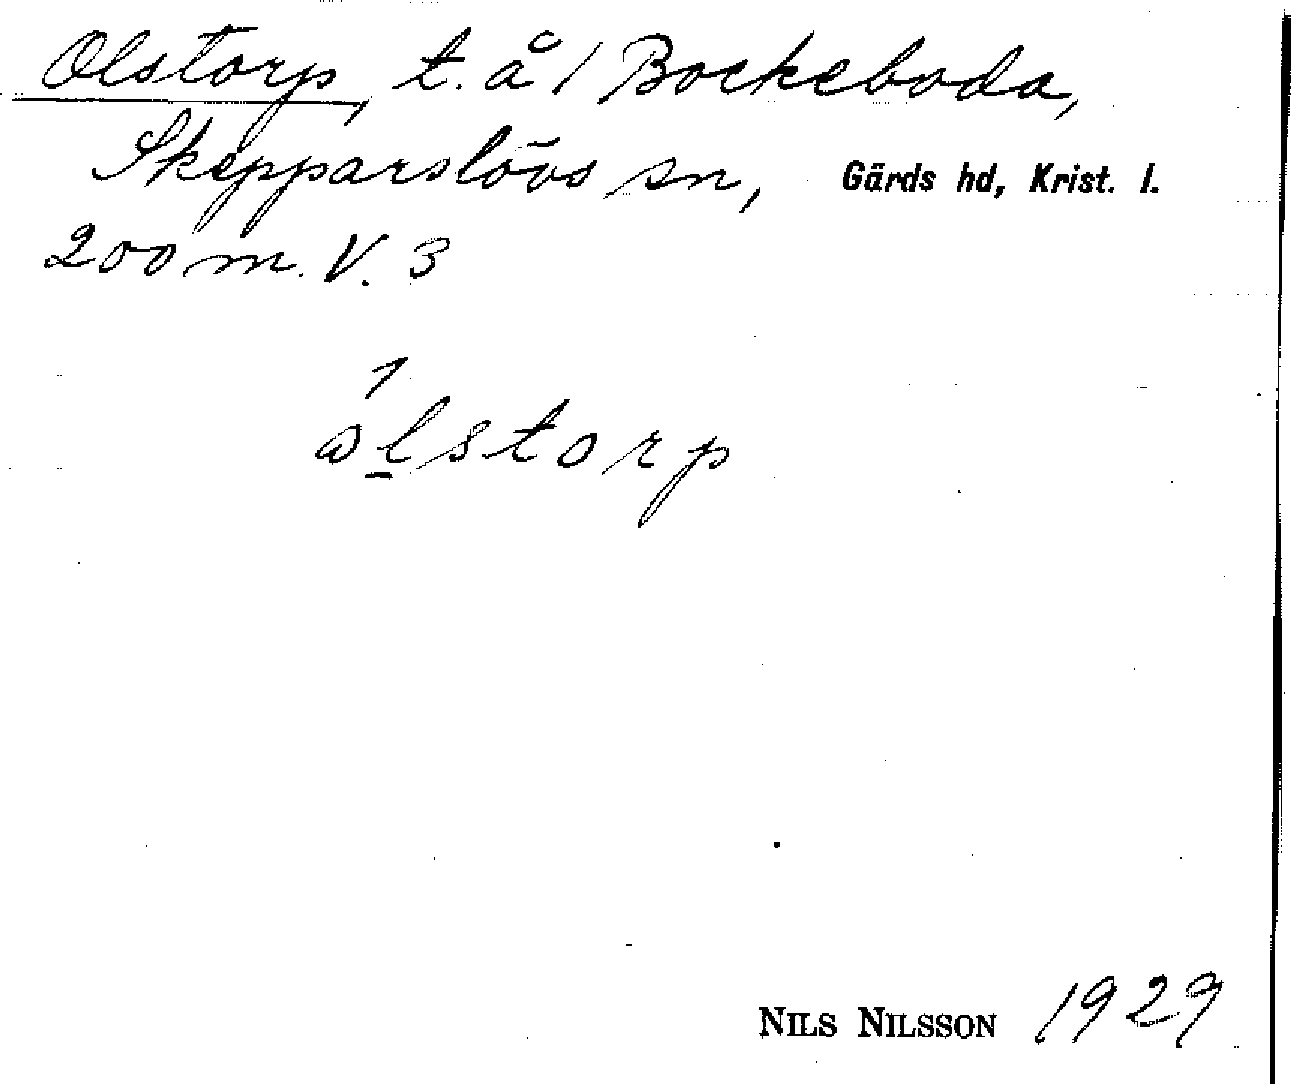 Olstorp, t. å / Bockeboda,
Skepparslövs sn, Gärds hd, Krist. l.
200 m. V. 3
ålstorp
NILS NILSSON 1929